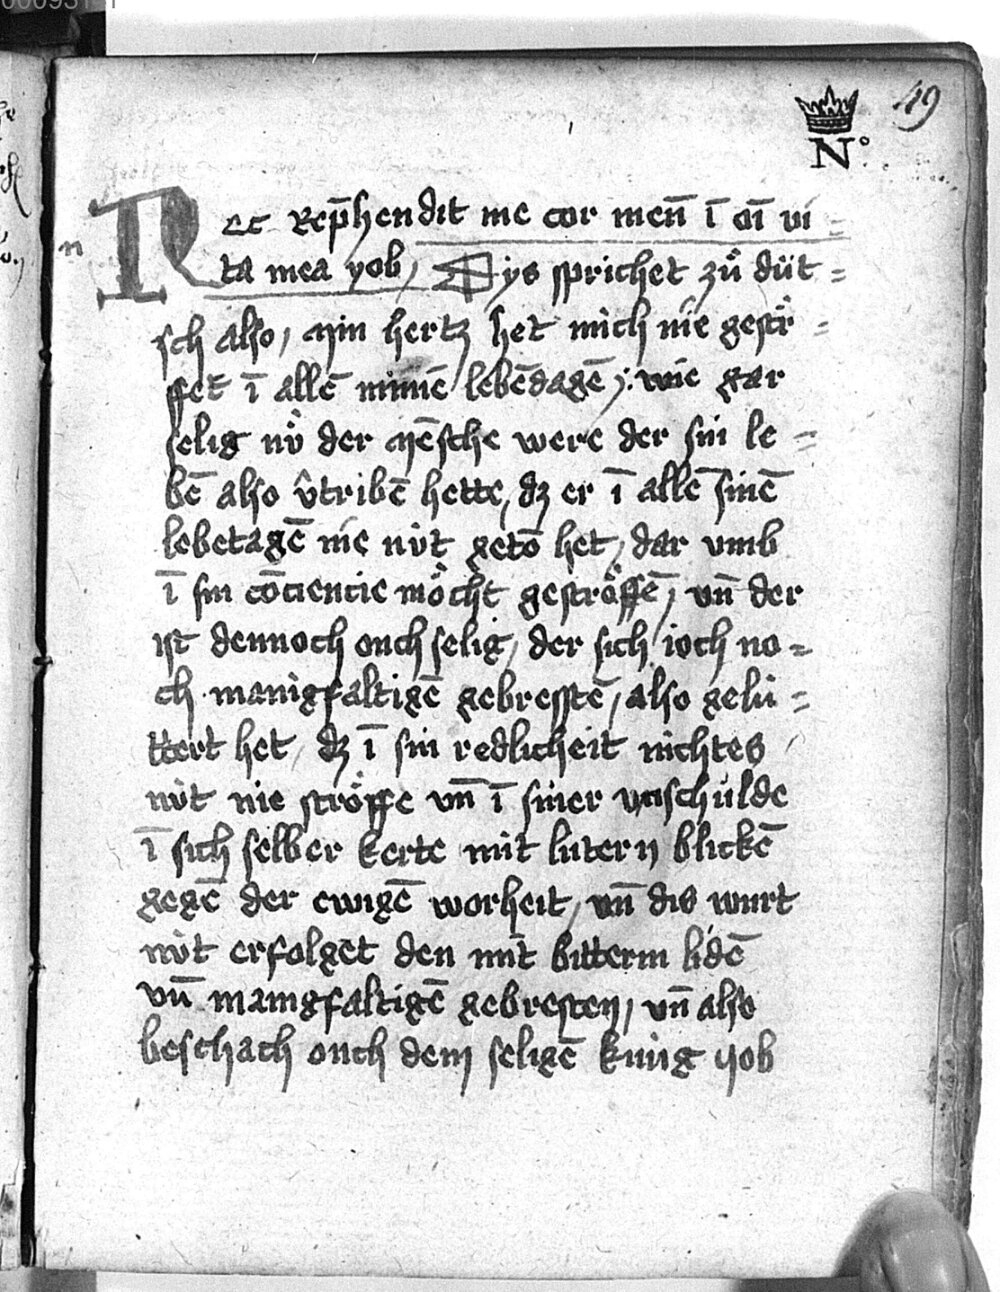 49
N°
Rec Rep̄hendit me cor meū ī oī vi =
n
ta mea yob / Dys sprichet zů düt =
sch also / Min hertz het mich nie gestr̊ =
ffet ī allē minnē lebēdagē / wie gar
selig nů der Mēsche were der sin le =
bē also v̂tribē hette / dz er ī allē sinē
lebetagē nie nüt getō het / dar vmb
ī sin cōciencie mo̊cht gestro̊ffē / vn̄ der
ist dennoch ouch selig / der sich ioch no =
ch manigfaltigē gebresstē / also gelü =
ttert het / dz ī sin redlicheit nichtes
nüt nie stro̊ffe vn̄ ī siner vnschulde
ī sich selber kerte mit lutern blickē
gegē der ewigē worheit / vn̄ dis wurt
nüt erfolget den mit bitterm lidē
vn̄ manigfaltigē gebresten / vn̄ also
beschach ouch dem seligē kunig yob